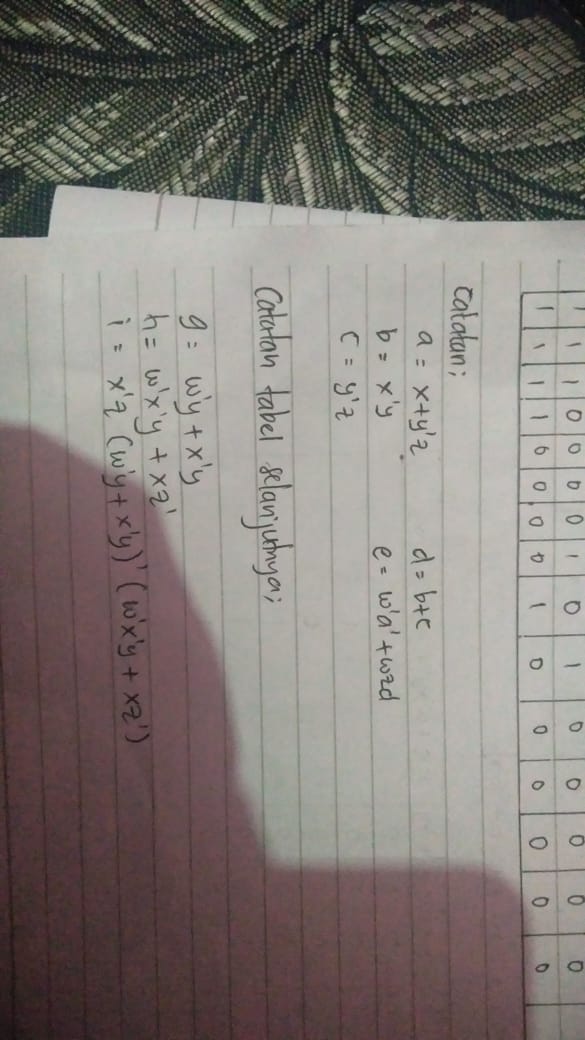 1 1 1 0 0 0 0 1 0 1 0 0 0 0 0
1 1 1 1 0 0 0 0 1 0 0 0 0 0 0
Catatan;
a = x+y'z d = b+c
b = x'y e = w'a'+wzd
c = y'z
Catatan tabel selanjutnya;
g = w'y + x'y
h = w'x'y + xz'
i = x'z (w'y+x'y)' (w'x'y + xz')